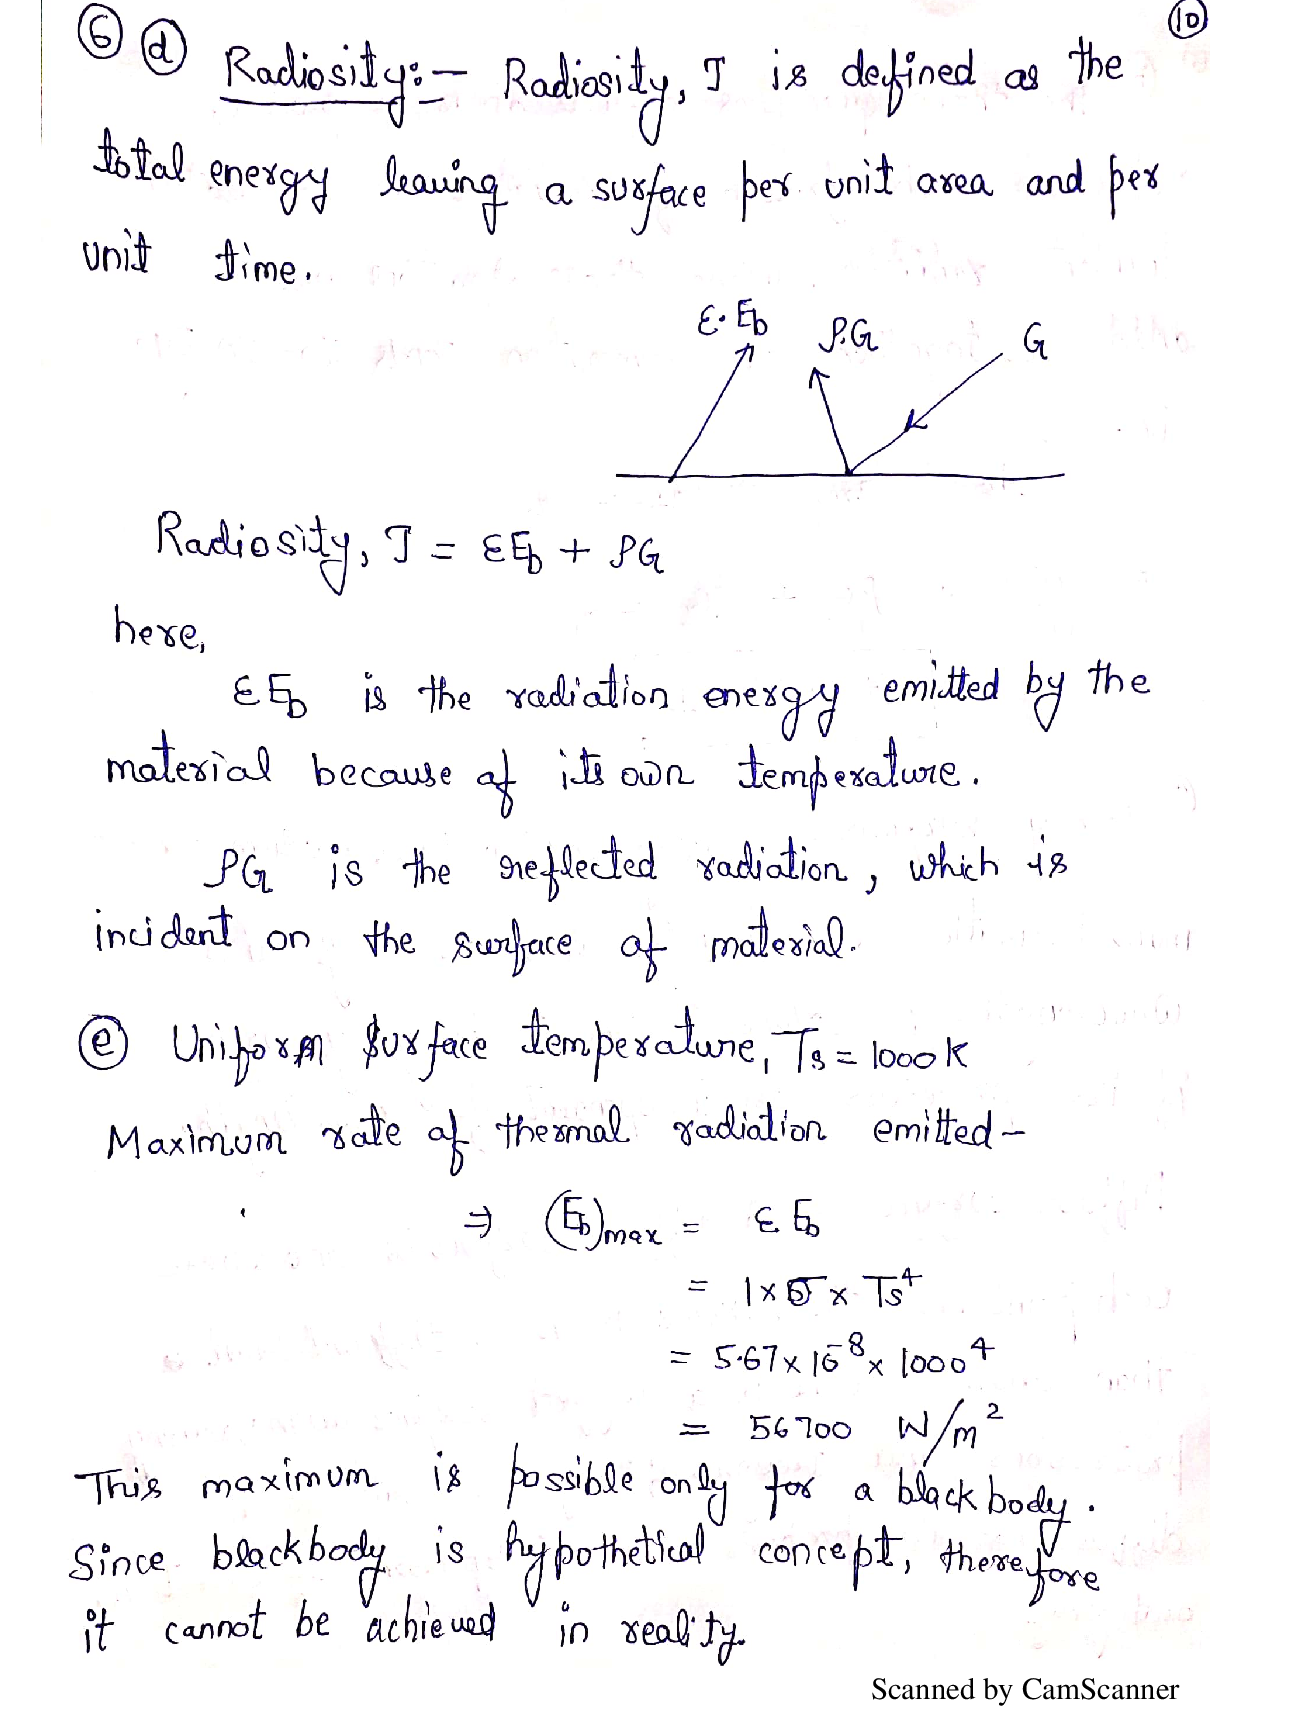 ⑥ ⓓ Radiosity:- Radiosity, J is defined as the ⑩
total energy leaving a surface per unit area and per
unit time.
ε.Eb ρ.G G
Radiosity, J = εEb + ρG
here,
εEb is the radiation energy emitted by the
material because of its own temperature.
ρG is the reflected radiation, which is
incident on the surface of material.
ⓔ Uniform surface temperature, Ts = 1000K
Maximum rate of thermal radiation emitted-
⇒ (Eb)max = εEb
= 1×σ×Ts⁴
= 5.67×10⁻⁸×1000⁴
= 56700 W/m²
This maximum is possible only for a blackbody.
Since blackbody is hypothetical concept, therefore
it cannot be achieved in reality.
Scanned by CamScanner